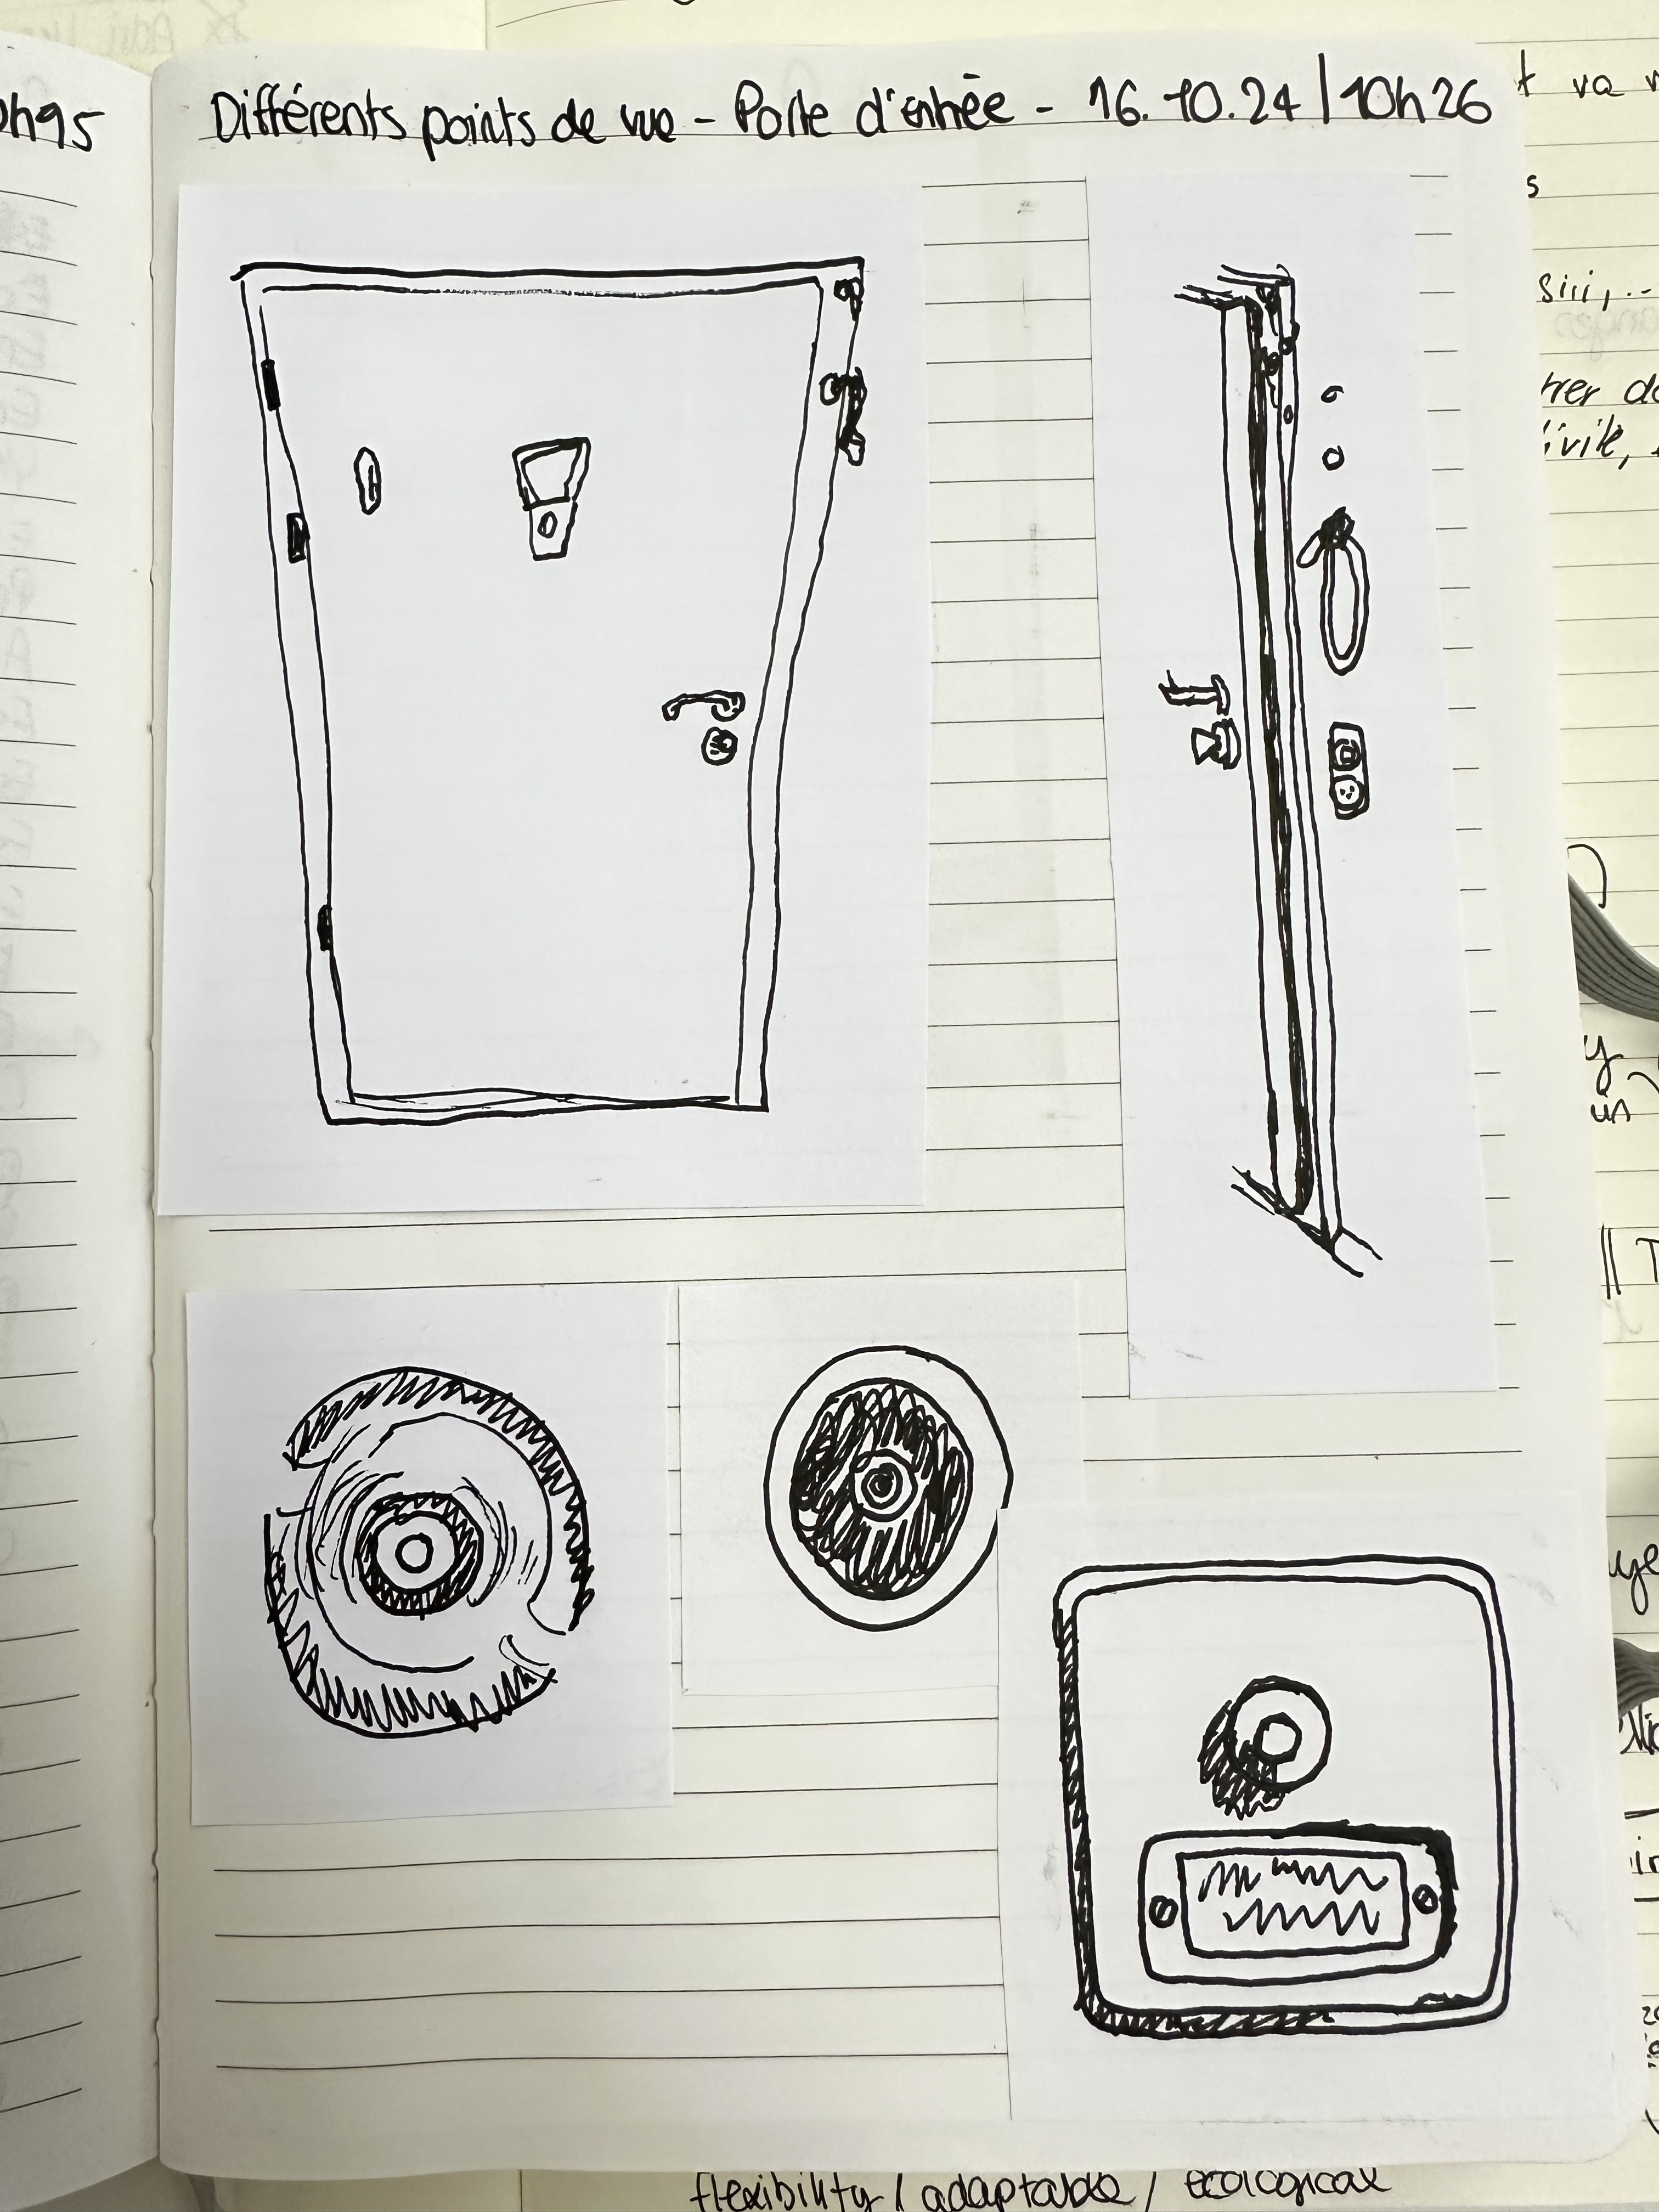 Différents points de vue - Porte d'entrée - 16.10.24 / 10h26
h45
t va
s
siii,..
rer
ivité,
y
un
flexibility / adaptable / ecological